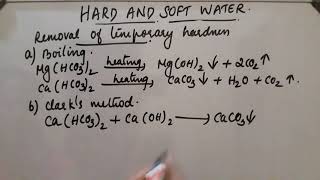 HARD AND SOFT WATER.
Removal of temporary hardness
a) Boiling.
Mg(HCO3)2 heating, Mg(OH)2 ↓ + 2CO2 ↑.
Ca(HCO3)2 heating, CaCO3 ↓ + H2O + CO2 ↑.
b) Clark's method.
Ca(HCO3)2 + Ca(OH)2 → CaCO3 ↓